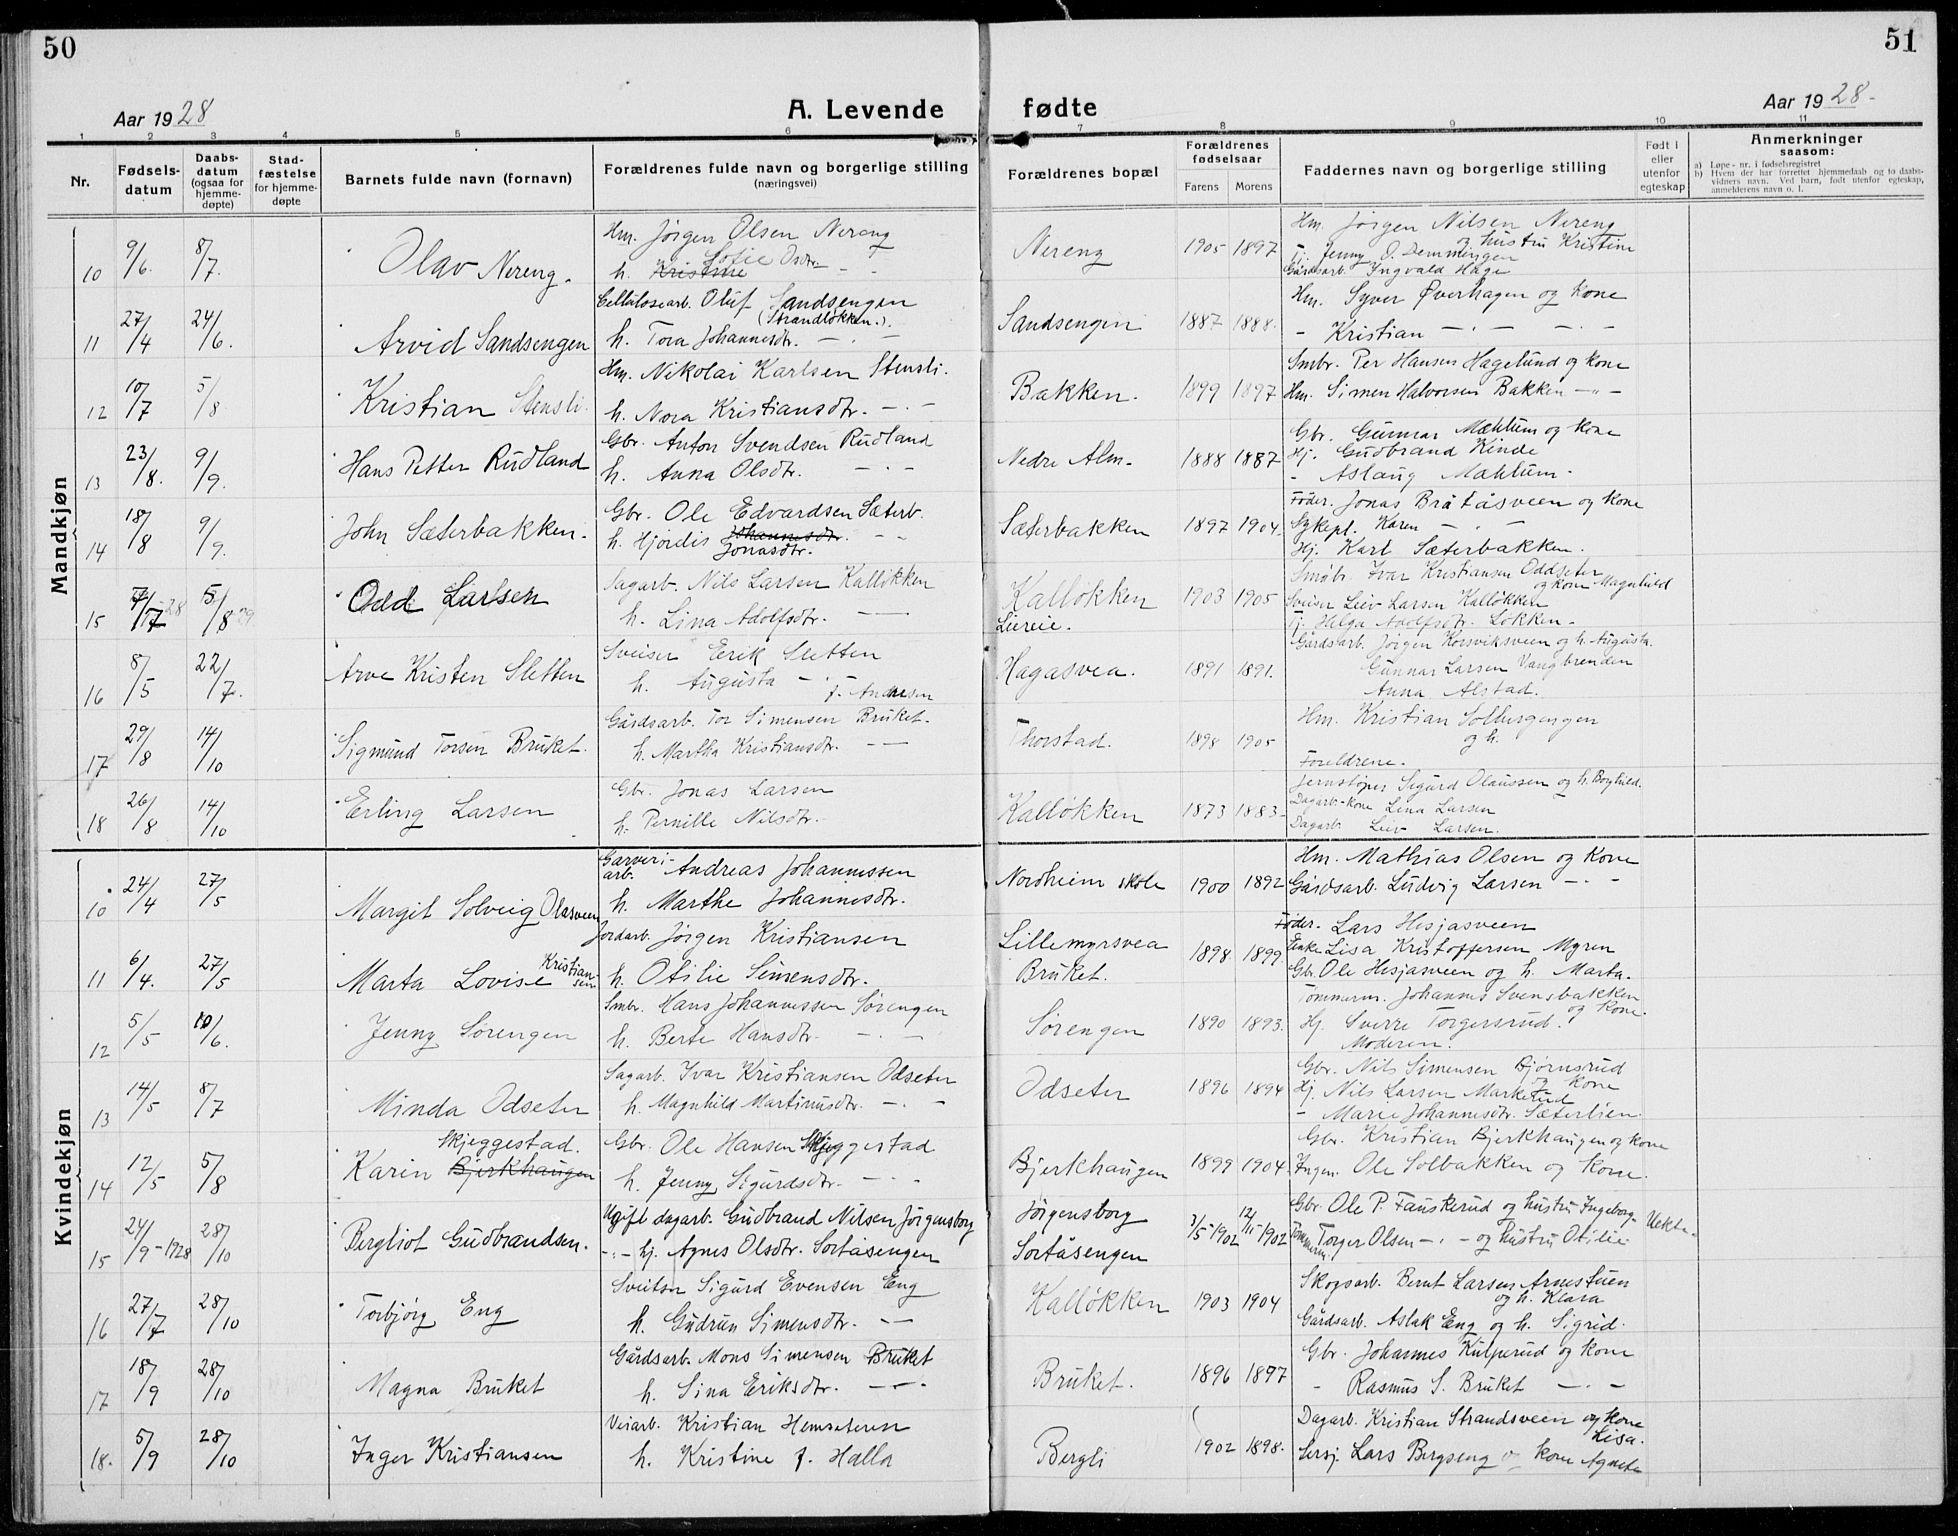 50
51
Aar 1928
A. Levende
fødte
Aar 1928-
1 2 3 4 5 6 7 8 9 10 11
Nr.
Fødsels-datum
Daabs-datum (ogsaa for hjemme-døpte)
Stad-fæstelse for hjemme-døpte
Barnets fulde navn (fornavn)
Forældrenes fulde navn og borgerlige stilling (næringsvei)
Forældrenes bopæl
Forældrenes fødselsaar
Farens Morens
Faddernes navn og borgerlige stilling
Født i eller utenfor egteskap
Anmerkninger saasom:
a) Løpe-nr. i fødselsregistret
b) Hvem der har forrettet hjemmedaab og to daabs-vidners navn. Ved barn, født utenfor egteskap, anmelderens navn o. l.
Mandkjøn
10 9/6. 8/7. Olav Nereng. Hm. Jørgen Olsen Nereng
h. Kristine Sofie Osdtr. - " - Nereng 1905 1897 Hm. Jørgen Nilsen Nereng
og hustru Kristine
Tj. Jenny O. Demmingen
Gårdsarb. Ingvald Hage
11 27/4 24/6. Arvid Sandsengen Cellulosearb. Oluf Sandsengen
(Strandløkken.).
h. Tora Johannesdtr. - " - Sandsengen 1887 1888. Hm. Syver Øverhagen og kone
- Kristian - " - - " -
12 10/7 5/8 Kristian Stensli. Hm. Nikolai Karlsen Stensli.
h. Nora Kristiansdtr. - " - Bakken. 1899 1897 Smbr. Per Hansen Hagelund og kone
Hm. Simen Halvorsen Bakken - " -
13 23/8. 9/9. Hans Petter Rudland Gbr. Anton Svendsen Rudland
h. Anna Olsdtr. - " - Nedre Alm- 1888 1887 Gbr. Gunnar Mæhlum og kone
Hj. Gudbrand Kinde
- Aslaug Mæhlum-
14 18/8 9/9. John Sæterbakken. Gbr. Ole Edvardsen Sæterb.
h. Hjordis Johannesdtr. - "
Jonasdtr. Sæterbakken 1897 1904. Føder. Jonas Bråtåsveen og kone
Sykepl. Karen - " -
Hj. Karl Sæterbakken.
15 4/7 28 5/8 29 Odd Larsen Sagarb. Nils Larsen Kalløkken
h. Lina Adolfsdtr. - Kalløkken 1903 1905 Småbr. Ivar Kristiansen Oddseter
og kone Magnhild
Sveiser Leiv Larsen Kalløkken
Tj. Helga Adolfsdtr. Løkken-
16 8/5 22/7. Arve Kristen Sletten Sveiser Erik Sletten
h. Augusta - " f. Andresen
Hagasvea. 1891 1891. Gårdsarb. Jørgen Korsviksveen og h. Augusta.
Gunnar Larsen Vangbrenden
Anna Alstad.
17 29/8 14/10 Sigmund Torsen Bruket. Gårdsarb. Tor Simensen Bruket.
h. Martha Kristiansdtr. - Thorstad. 1898 1905 Hm. Kristian Solbergengen
og h.
Foreldrene.
18 26/8 14/10 Erling Larsen Gbr. Jonas Larsen
h. Pernille Nilsdtr. Kalløkken 1873 1883 Jernstøper Sigurd Olaussen og h. Borghild.
Dagarb.-kone Lina Larsen
Dagarb. Leiv Larsen.
Kvindekjøn
10 24/4 27/5 Margit Solveig Olasveen Garveriarb. Andreas Johannessen
h. Marthe Johannesdtr. Nordheim skole 1900 1892 Hm. Mathias Olsen og kone
Gårdsarb. Ludvig Larsen - " -
11 6/4. 27/5 Marta Lovise Kristiansen Jordarb. Jørgen Kristiansen
h. Otilie Simensdtr. Lillemyrsvea
Bruket. 1898 1899 Føder. Lars Hesjasveen
Enke Lisa Kristoffersen Myren
Gbr. Ole Hesjasveen og h. Marta.
12 5/5 10/6. Jenny Sørengen Smbr. Hans Johannessen Sørengen
h. Berte Hansdtr. - " - Sørengen 1890 1893. Tømmerm. Johannes Svensbakken
og kone.
Hj. Sverre Torgersrud.
Moderen.
13 14/5 8/7 Minda Odseter Sagarb. Ivar Kristiansen Odseter
h. Magnhild Martinusdtr. - " - Odseter 1896 1894 Gbr. Nils Simensen Bjørnsrud
og kone
Hj. Nils Larsen Markerud
- Marie Johannesdtr. Sæterlien.
14 12/5 5/8 Karin Bjerkhaugen Skjeggestad. Gbr. Ole Hansen Skjeggestad
h. Jenny Sigurdsdtr. - " - Bjerkhaugen 1899 1904 Gbr. Kristian Bjerkhaugen og kone
Ingen. Ole Solbakken og kone.
15 24/9-1928 28/10 Bergliot Gudbrandsen. Ugift dagarb. Gudbrand Nilsen Jørgensborg
- " - hj. Agnes Olsdtr. Sortåsengen Jørgensborg
Sortåsengen 3/5-1902 12/11-1902 Gbr. Ole P. Fauskerud og hustru Ingeborg
Tømmerm. Torger Olsen - " - og hustru Otilie Uekte.
16 27/7 28/10 Torbjørg Eng Sveiser Sigurd Evensen Eng
h. Gudrun Simensdtr. - Kalløkken 1903 1904 Skogsarb. Bernt Larsen Arnestuen
og h. Klara
Gårdsarb. Aslak Eng og h. Sigrid.
17 18/9 28/10 Magna Bruket Gårdsarb. Mons Simensen Bruket
h. Sina Eriksdtr. - " - Bruket. 1896 1897 Gbr. Johannes Kulperud og kone
- Rasmus S. Bruket - " -
18. 5/9 28/10 Inger Kristiansen Veiarb. Kristian Hemseteren
h. Kristine f. Halla Bergli 1902 1898. Dagarb. Kristian Strandsveen og kone
Lisa.
Sersj. Lars Bergseng og kone Agnete